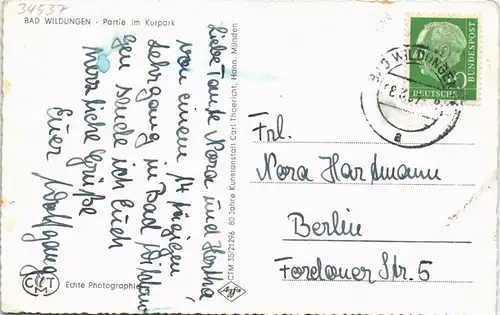 34537
BAD WILDUNGEN - Partie im Kurpark
Liebe Tante Nora und Hertha!
von einem 14 tägigen
Lehrgang in Bad Wildun
gen sende ich Euch
herzliche Grüße
Euer Wolfgang
CTM
Echte Photographie
CTM 35/21296 80 Jahre Kunstanstalt Carl Thoericht, Hann. Münden
Agfa
BAD WILDUNGEN
a
DEUTSCHE
BUNDESPOST
Frl.
Nora Hartmann
Berlin
Fordoner Str. 5